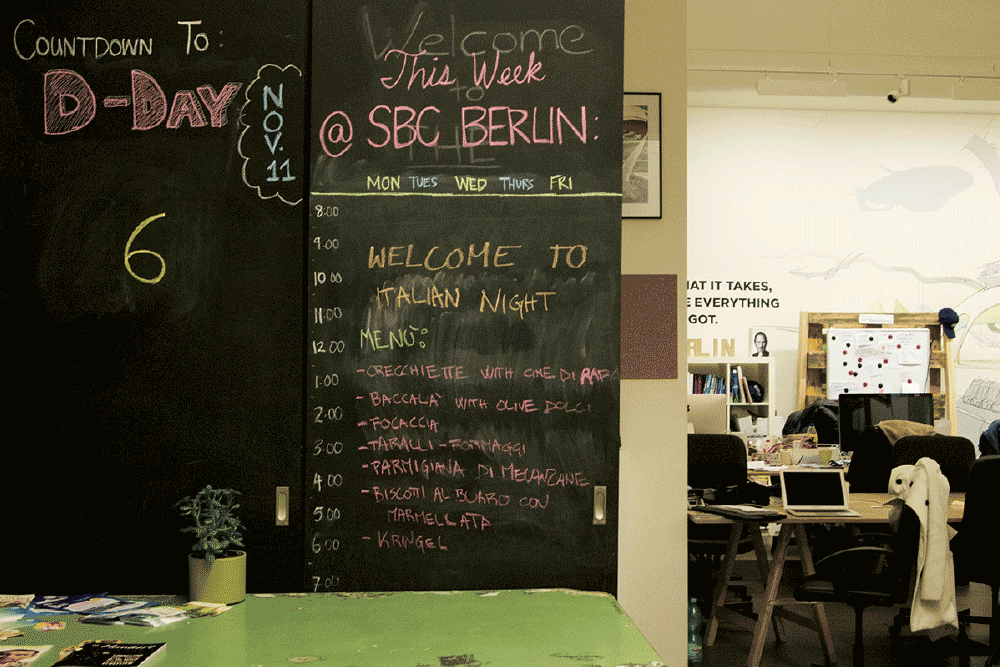 COUNTDOWN TO:
D-DAY
NOV. 11
6
Welcome
This Week
to
@ SBC BERLIN:
THE
MON TUES WED THURS FRI
8:00
9:00
10:00
11:00
12:00
1:00
2:00
3:00
4:00
5:00
6:00
7:00
WELCOME TO
ITALIAN NIGHT
MENÙ:
- ORECCHIETTE WITH CIME DI RAPA
- BACCALA' WITH OLIVE DOLCI
- FOCACCIA
- TARALLI - FORMAGGI
- PARMIGIANA DI MELANZANE
- BISCOTTI AL BURRO CON
MARMELLATA
- KRINGEL
HAT IT TAKES,
E EVERYTHING
GOT.
RLIN